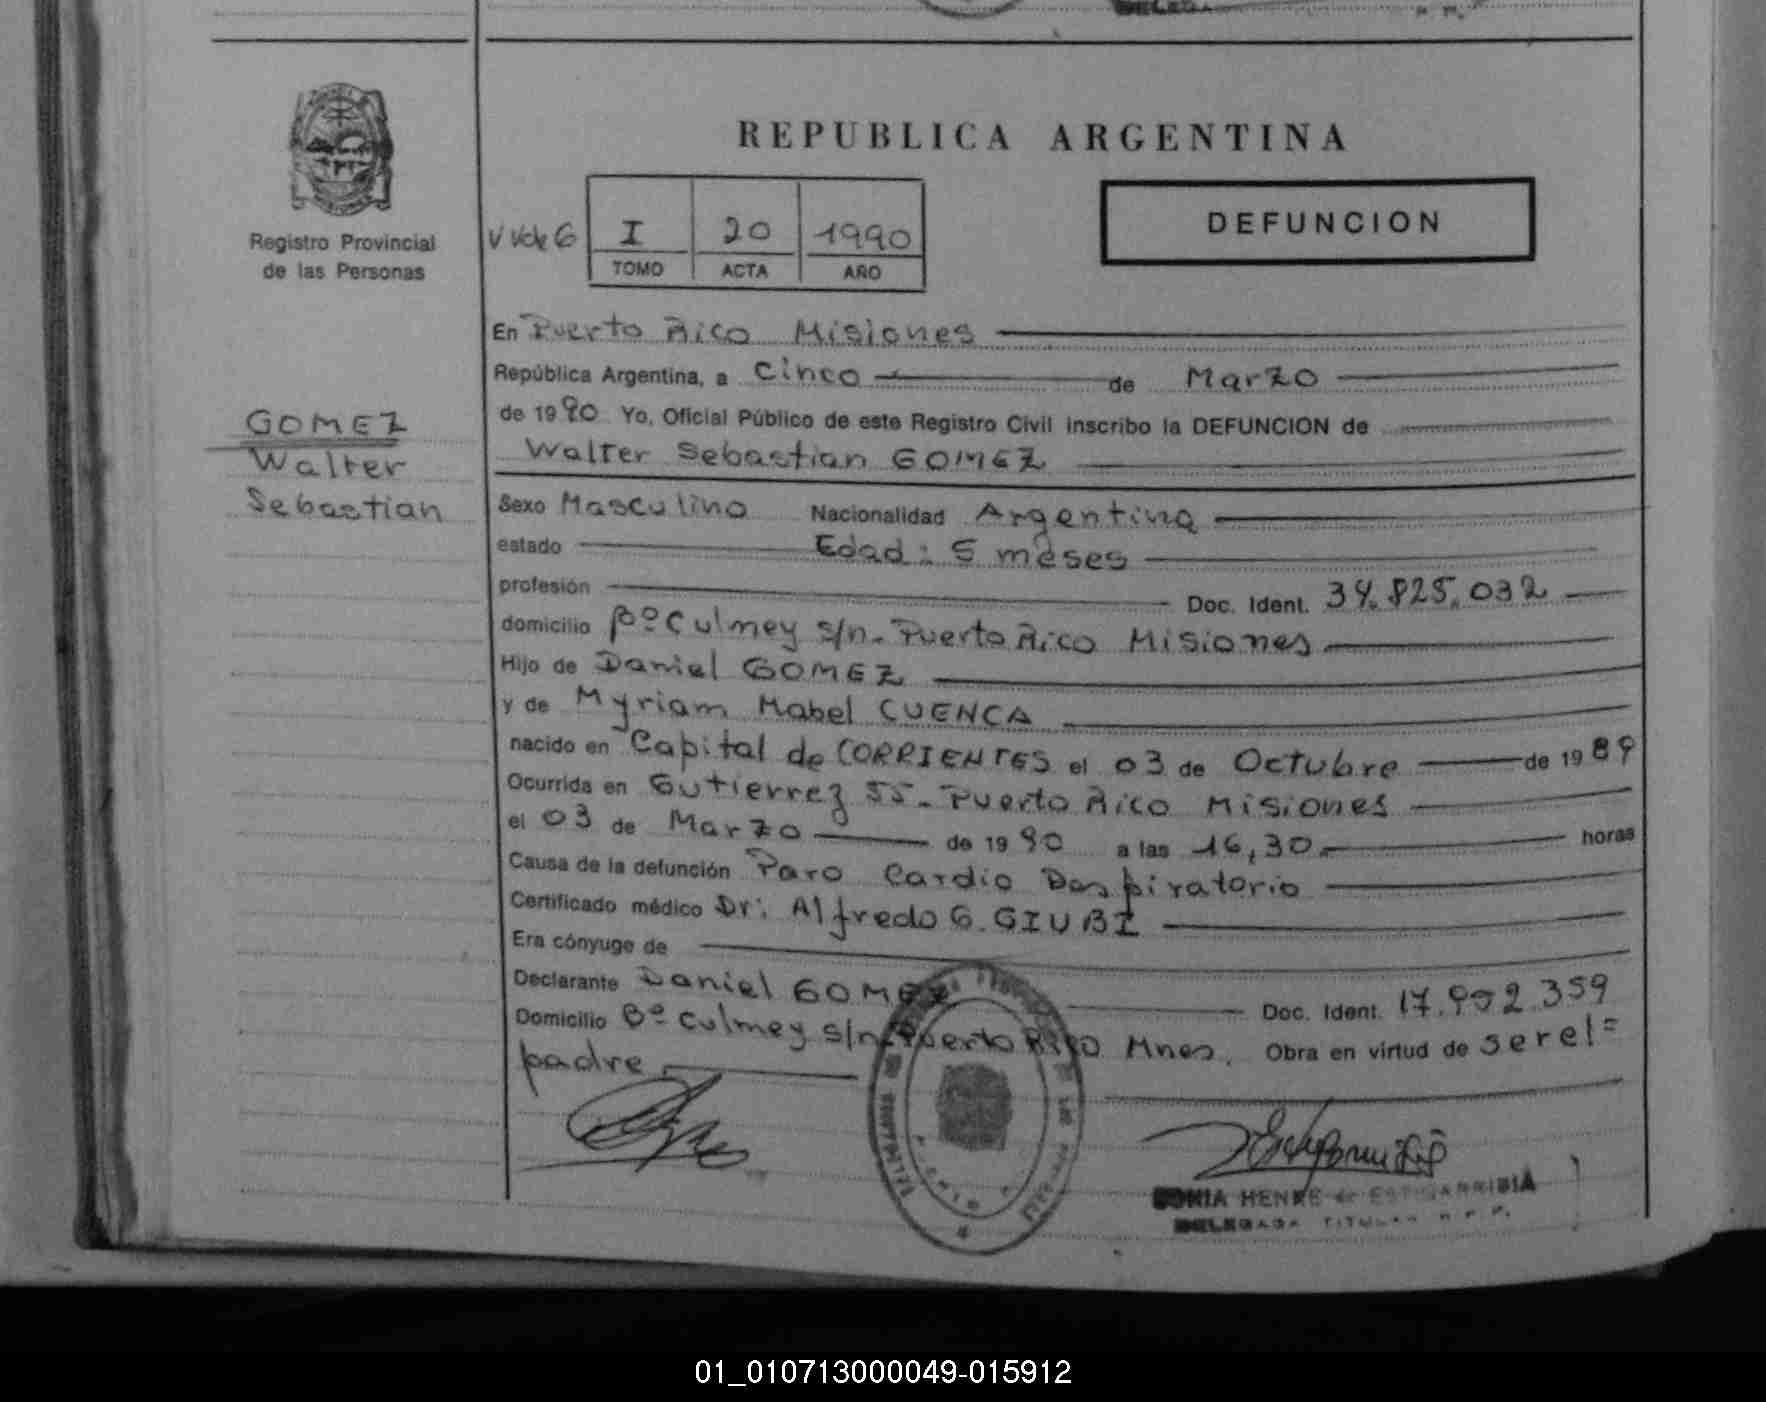 REPUBLICA ARGENTINA
Registro Provincial
de las Personas
I 20 1990
TOMO ACTA AÑO
DEFUNCION
GOMEZ
Walter
Sebastian
En Puerto Rico Misiones
República Argentina, a Cinco de Marzo
de 1990 Yo, Oficial Público de este Registro Civil inscribo la DEFUNCION de
Walter Sebastian GOMEZ
Sexo Masculino Nacionalidad Argentina
estado Edad: 5 meses
profesión Doc. Ident. 34.825.032
domicilio Bº Culmey s/n. Puerto Rico Misiones
Hijo de Daniel GOMEZ
y de Myriam Mabel CUENCA
nacido en Capital de CORRIENTES el 03 de Octubre de 1989
Ocurrida en Gutierrez 55. Puerto Rico Misiones
el 03 de Marzo de 1990 a las 16,30 horas
Causa de la defunción Paro Cardio
Certificado médico Dr: Alfredo G. GIUBI
Era cónyuge de
Declarante Daniel GOMEZ Doc. Ident. 17.952.359
Domicilio Bº Culmey s/n Puerto Rico Mnes. Obra en virtud de ser el=
padre
SONIA HENKE de ESTIGARRIBIA
DELEGADA TITULAR R.P.P.
01_010713000049-015912